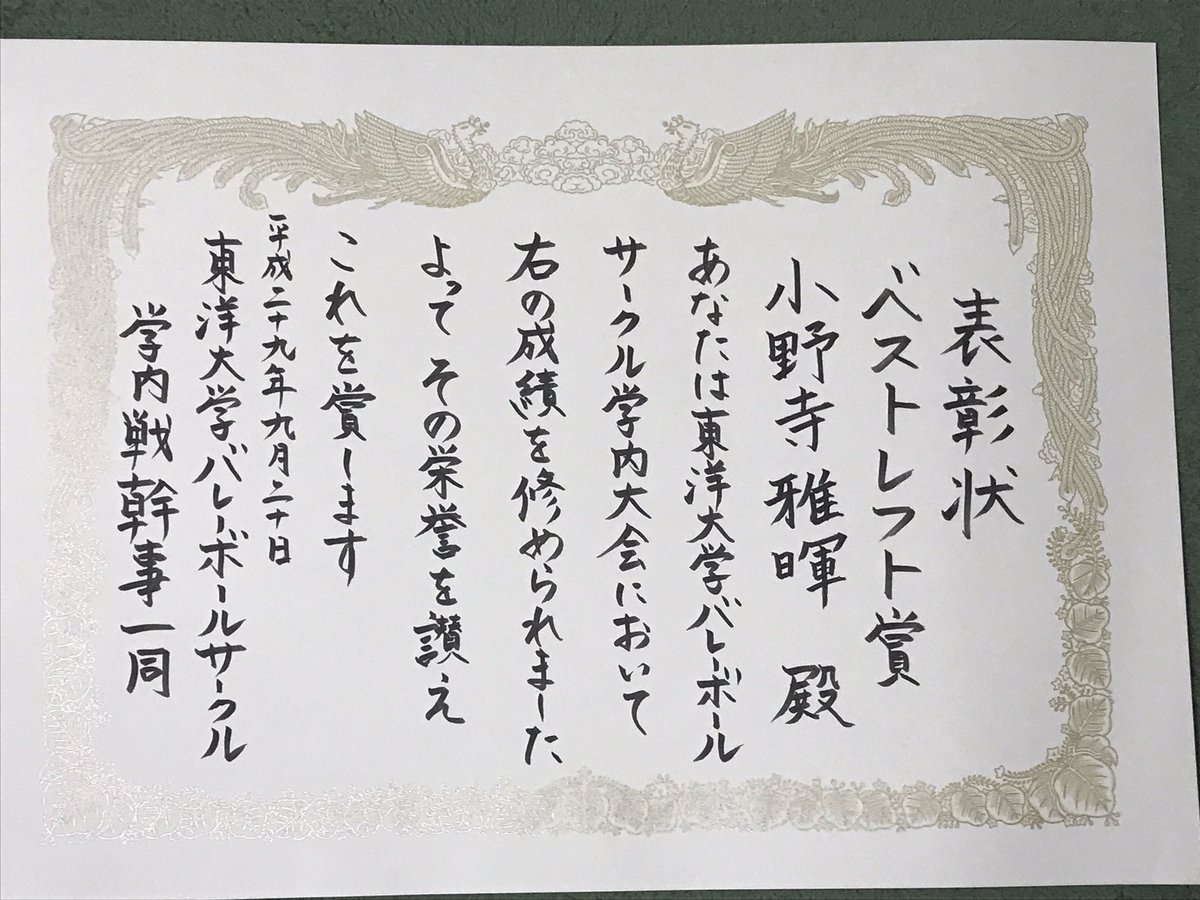 表彰状
ベストレフト賞
小野寺雅暉 殿
あなたは東洋大学バレーボール
サークル学内大会において
右の成績を修められました
よってその栄誉を讃え
これを賞します
平成二十九年九月二十日
東洋大学バレーボールサークル
学内戦幹事一同